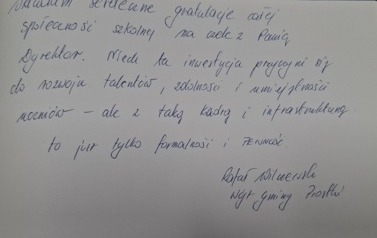 serdeczne gratulacje całej
społeczności szkolnej na czele z Panią
Dyrektor. Niech ta inwestycja przyczyni się
do rozwoju talentów, zdolności i umiejętności
uczniów – ale z taką kadrą i infrastrukturą
to już tylko formalność i
Rafał Wilczewski
Wójt gminy Prostki